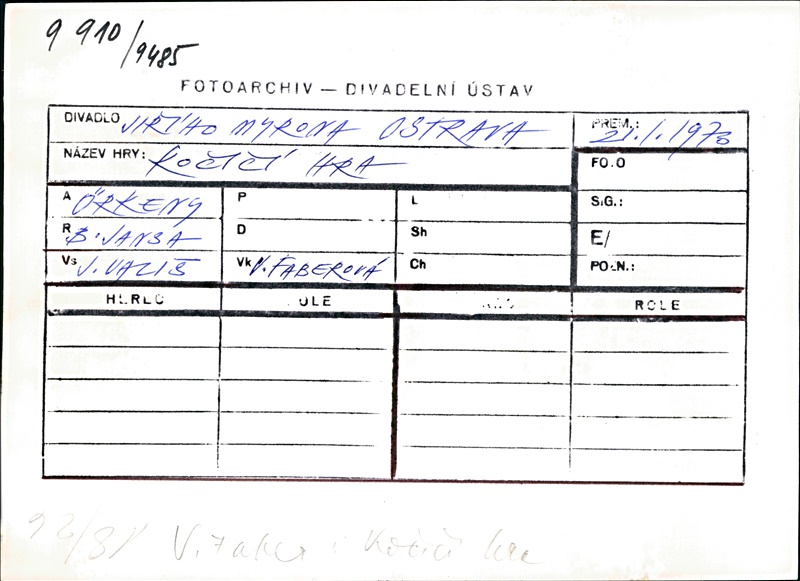 9 910/9485
FOTOARCHIV — DIVADELNÍ ÚSTAV
DIVADLO JIŘÍHO MYRONA OSTRAVA PREM.: 21.1.1973
NÁZEV HRY: KOČIČÍ HRA FO.O
A ÖRKENY P L SIG.:
R B. JANSA D Sh E/
Vs J. VALIŠ Vk V. FABEROVÁ Ch POZN.:
HEREC OLE ROLE
92/81 V. Faber : Kočičí hra